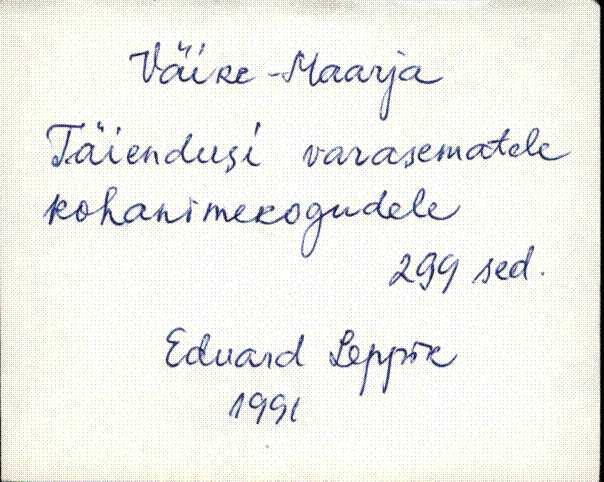 Väike-Maarja
Täiendusi varasematele
kohanimekogudele
299 sed.
Eduard Leppik
1991